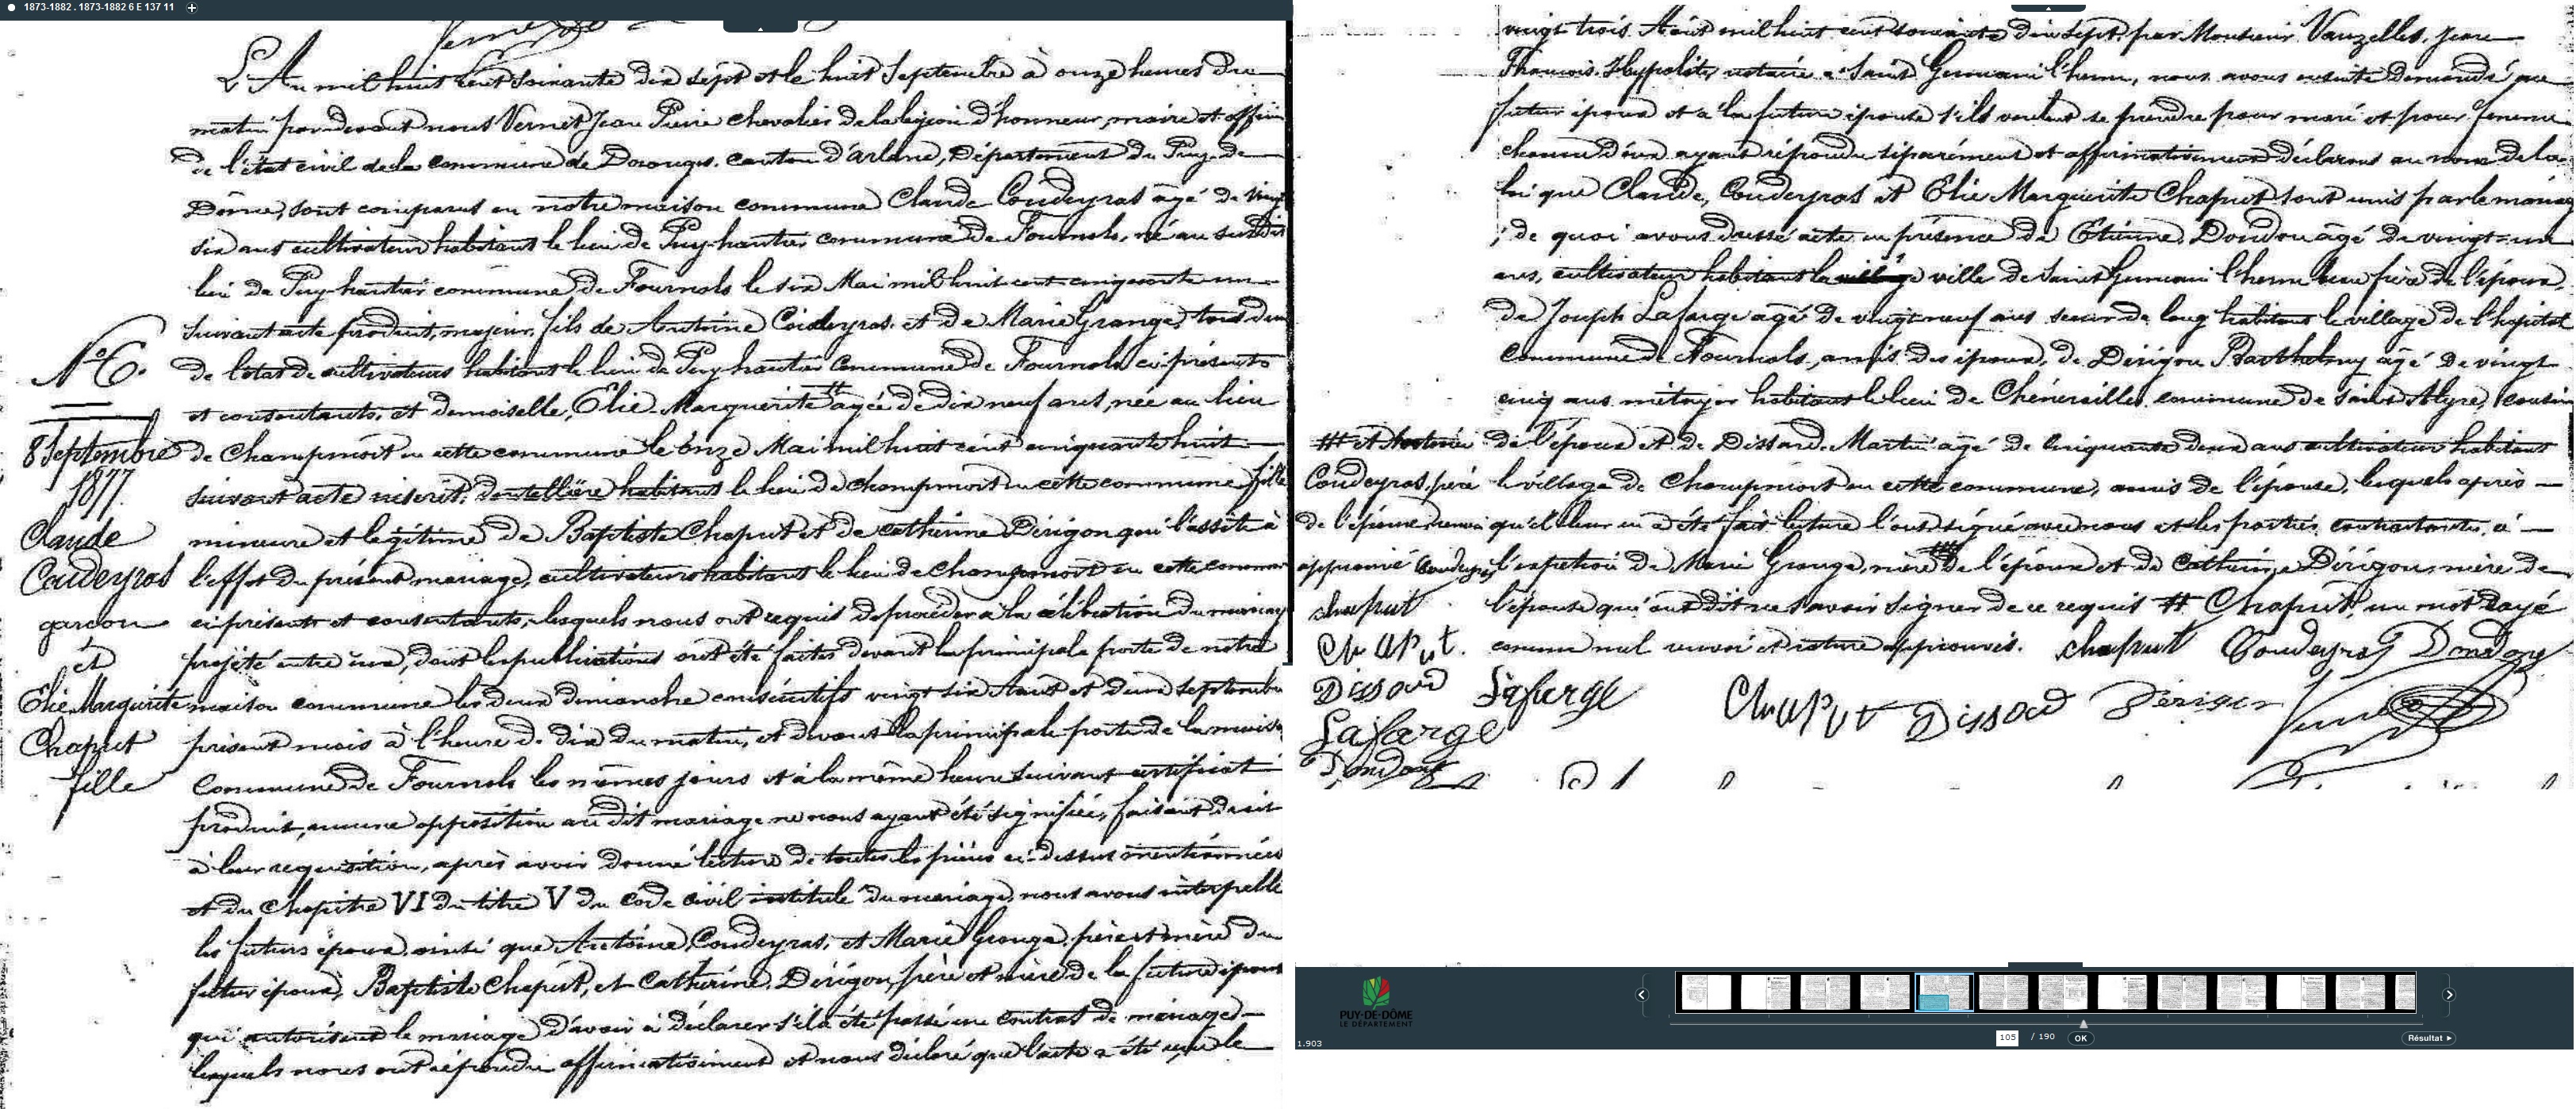 1873-1882 . 1873-1882 6 E 137 11
L'An mil huit cent soixante dix sept et le huit Septembre à onze heures du
matin par devant nous Vernet Jean Pierre chevalier de la légion d'honneur, maire et officier
de l'état civil de la commune de Doranges, canton d'arlanc, Département du Puy-de-
Dôme, sont comparus en notre maison commune Claude Coudeyras agé de vingt
six ans cultivateur habitant le lieu de Puy-hautier commune de Fournols, né au susdit
lieu de Puy-hautier commune de Fournols le six Mai mil huit cent cinquante un
suivant acte produit, majeur, fils de Antoine Coudeyras et de Marie Grange, tous deux
de l'état de cultivateurs habitant le lieu de Puy-hautier commune de Fournols ci présents
et consentants, et demoiselle, Elie Marguerite # agée de dix neuf ans, née au lieu
de Champmort en cette commune le onze Mai mil huit cent cinquante huit
suivant acte inscrit, dentellière habitant le lieu de champmort en cette commune fille
mineure et légitime de Baptiste Chaput et de catherine Dérigon qui l'assite à
l'effet du présent mariage, cultivateurs habitant le lieu de champmort en cette commune
ci présents et consentants, lesquels nous ont requis de procéder à la célébration du mariage
projeté entre eux, dont les publications ont été faites devant la principale porte de notre
maison commune les deux dimanche consécutifs vingt six Août et deux septembre
présent mois à l'heure de dix du matin, et devant la principale porte de la maison
commune de Fournols les mêmes jours et à la même heure suivant certificat
produit, aucune opposition au dit mariage ne nous ayant été signifiée, faisant droit
à leur requisition, après avoir donné lecture de toutes les pièces ci-dessus mentionnées
et du Chapitre VI du titre V du code civil intitulé du mariage, nous avons interpellé
les futurs époux, ainsi que Antoine Coudeyras, et Marie Grange, père et mère du
futur époux, Baptiste Chaput, et Catherine Dérigon, père et mère de la future épouse
qui autorisent le mariage d'avoir à déclarer s'il a été passé un contrat de mariage
lesquels nous ont répondu affirmativement et nous déclaré que l'acte a été reçu le
N° 6.
8 Septembre
1877.
Claude
Coudeyras
garçon
et
Elie Marguerite
Chaput
fille
vingt trois Août mil huit cent soixante dix sept, par Monsieur Vauzelles, Jean
François Hyppolite, notaire à Saint Germain l'herm, nous avons ensuite demandé au
futur époux et à la future épouse s'ils veulent se prendre pour mari et pour femme
chacun d'eux ayant répondu séparément et affirmativement déclarons au nom de la
loi que Claude, Coudeyras et Elie Marguerite Chaput sont unis par le mariage
; de quoi avons dressé acte en présence de Etienne Dondon agé de vingt-un
ans, cultivateur habitant la ville de Saint Germain l'herm beau frère de l'époux,
de Joseph Lafarge agé de vingt neuf ans scieur de long habitant le village de l'hopital
commune de Fournols, amis des époux, de Dérigon Barthelmy agé de vingt
cinq ans métayer habitant le lieu de Chéneraille commune de Saint Alyre, cousin
de l'épouse et de Dissard Martin agé de cinquante deux ans cultivateur habitant
le village de Champmort en cette commune, amis de l'épouse, lesquels après
qu'il leur en a été fait lecture l'ont signé avec nous et les parties contractantes, à
l'exception de Marie Grange, mère ## de l'époux et de Catherine Dérigon, mère de
l'épouse qui ont dit ne savoir signer de ce requis # Chaput, un mot rayé
comme nul renvoi et rature approuvés. chaput Coudeyras Dondon
Lafarge Chaput Dissard Dérigon Vernet
## et Antoine
Coudeyras, père
de l'époux renvoi
approuvé Coudeyras
chaput
Chaput.
Dissard
Lafarge
Dondon
PUY-DE-DÔME
LE DÉPARTEMENT
1.903
105 / 190 OK
Résultat